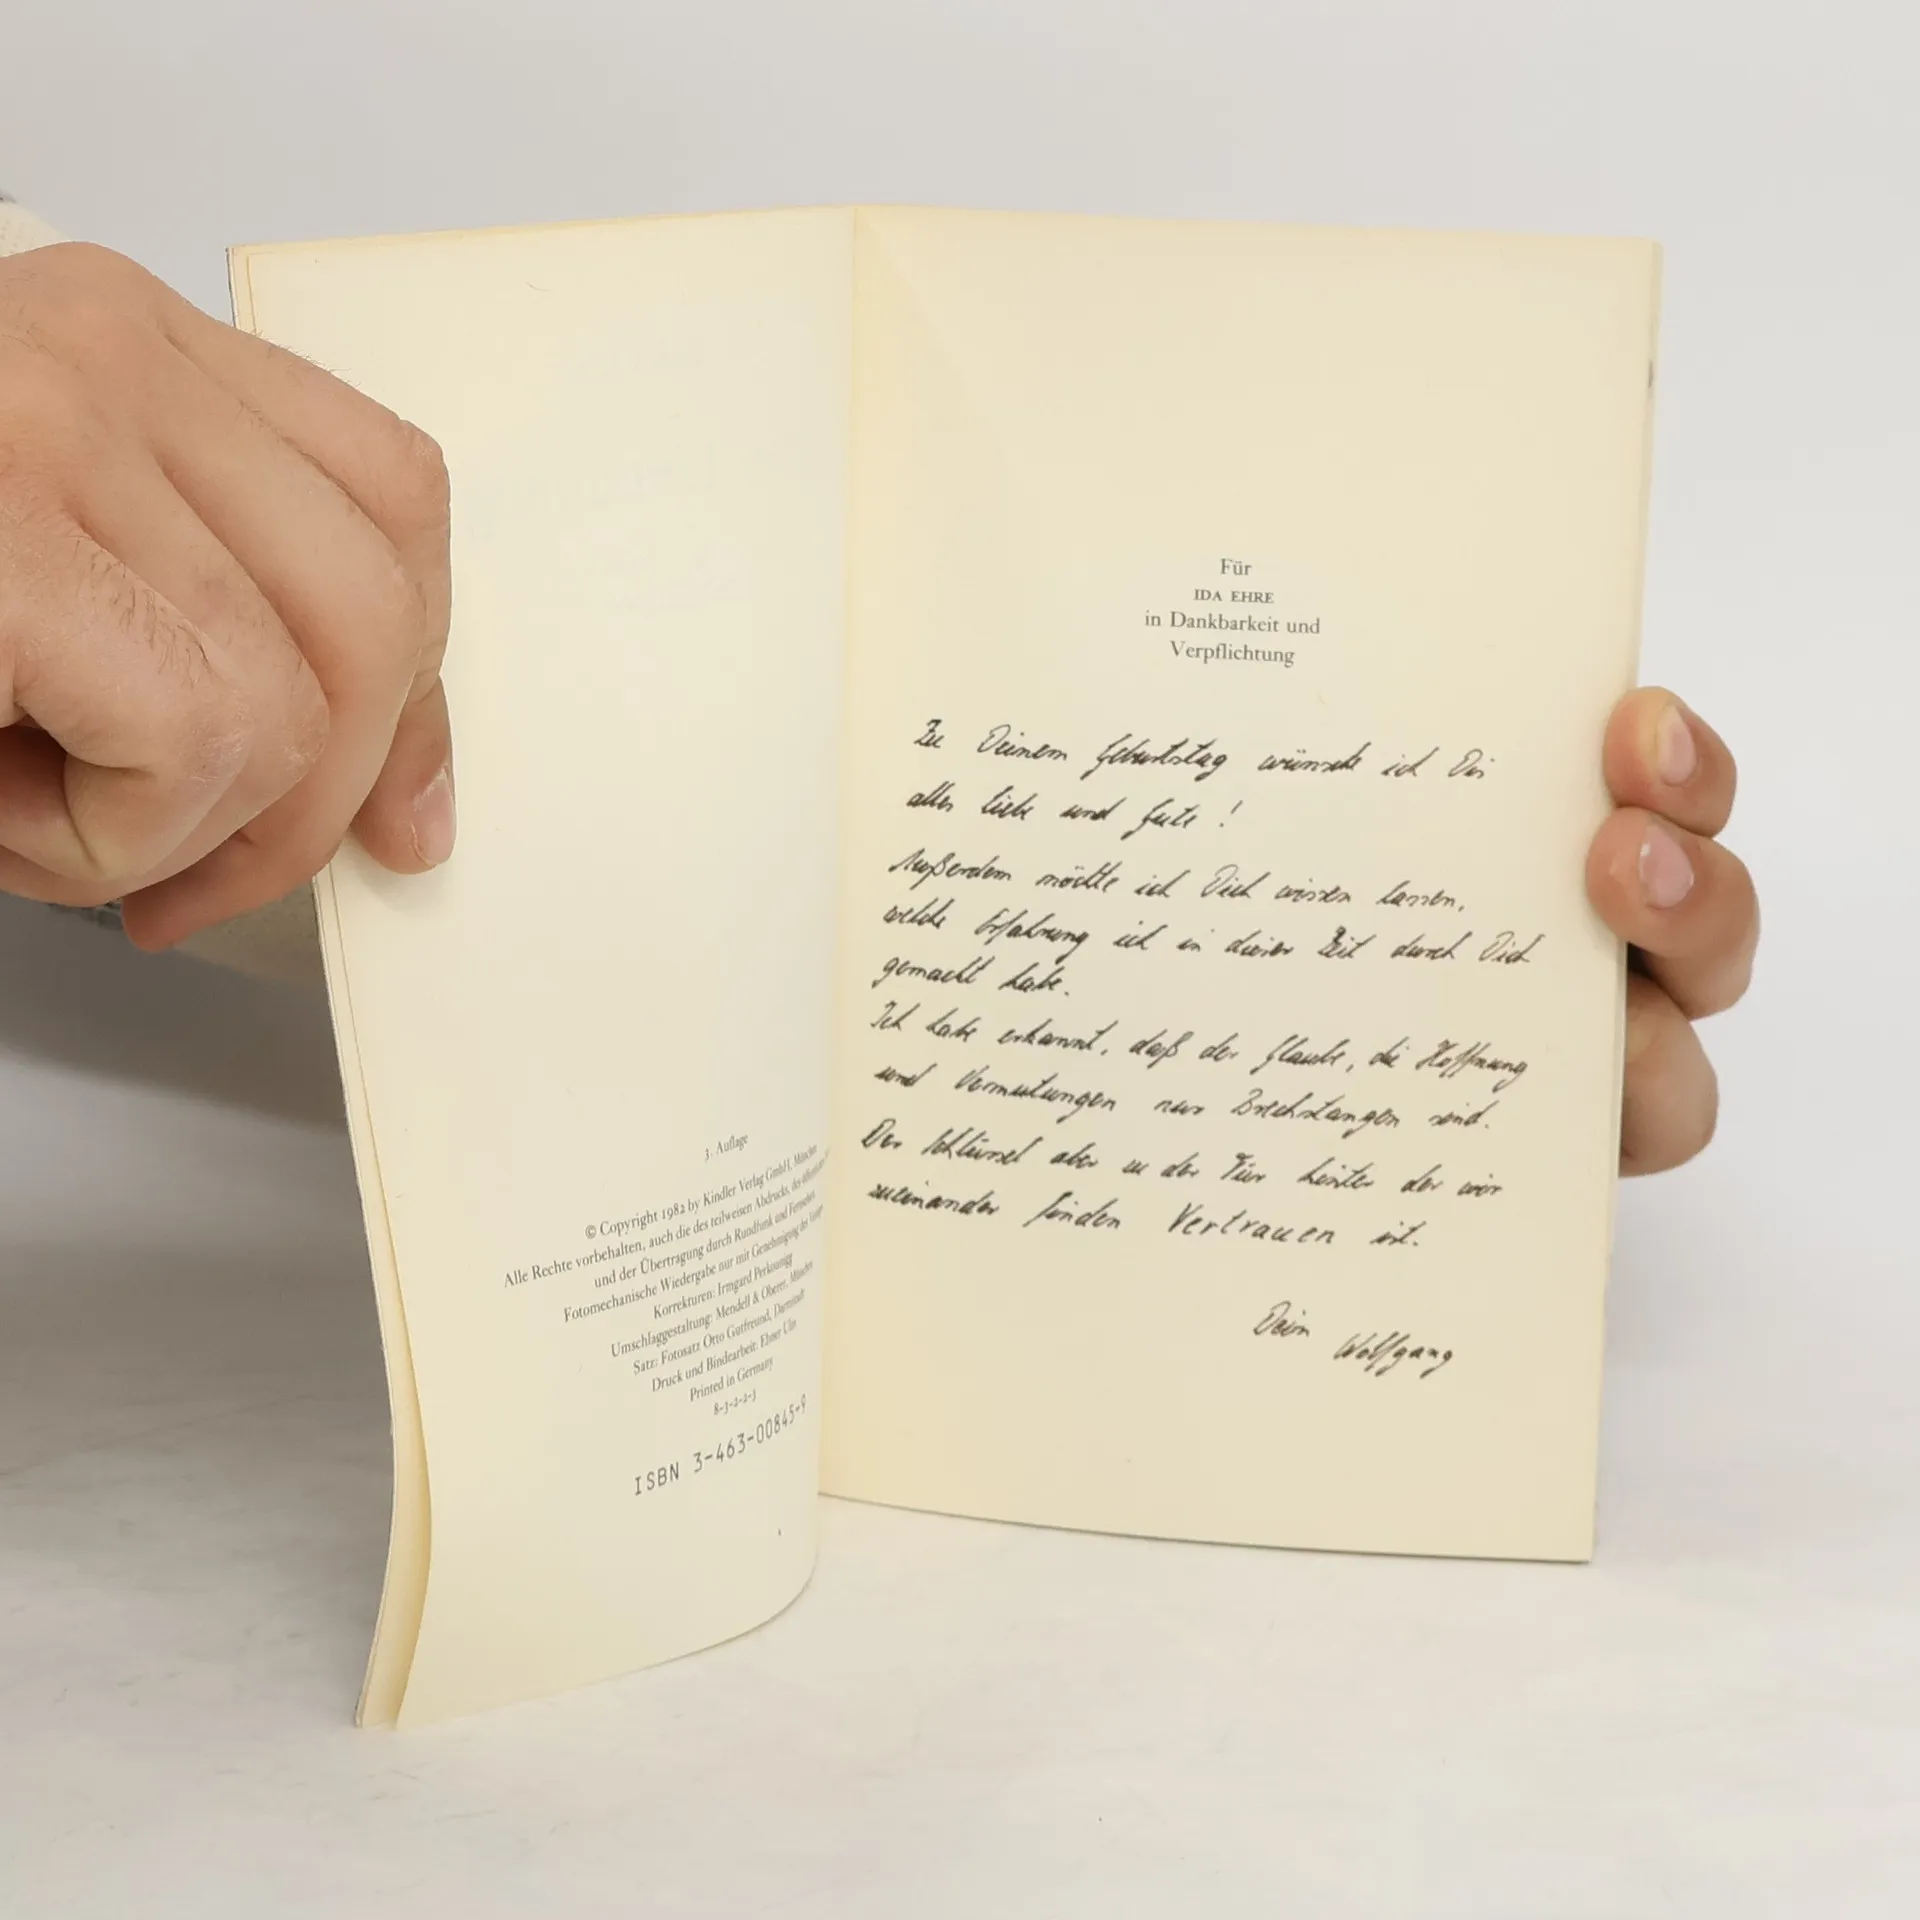 3. Auflage
© Copyright 1982 by Kindler Verlag GmbH, München
Alle Rechte vorbehalten, auch die des teilweisen Abdrucks, des
und der Übertragung durch Rundfunk und Fernsehen
Fotomechanische Wiedergabe nur mit Genehmigung des Verlages
Korrekturen: Irmgard Perkounigg
Umschlaggestaltung: Mendell & Oberer, München
Satz: Fotosatz Otto Gutfreund, Darmstadt
Druck und Bindearbeit: Ebner Ulm
Printed in Germany
8-3-2-2-3
ISBN 3-463-00845-9
Für
IDA EHRE
in Dankbarkeit und
Verpflichtung
Zu Deinem Geburtstag wünsche ich Dir
alles Liebe und Gute!
Außerdem möchte ich Dich wissen lassen,
welche Erfahrung ich in dieser Zeit durch Dich
gemacht habe.
Ich habe erkannt, daß der Glaube, die Hoffnung
und Vermutungen nur Brechstangen sind.
Der Schlüssel aber zu der Tür hinter der wir
zueinander finden Vertrauen ist.
Dein Wolfgang